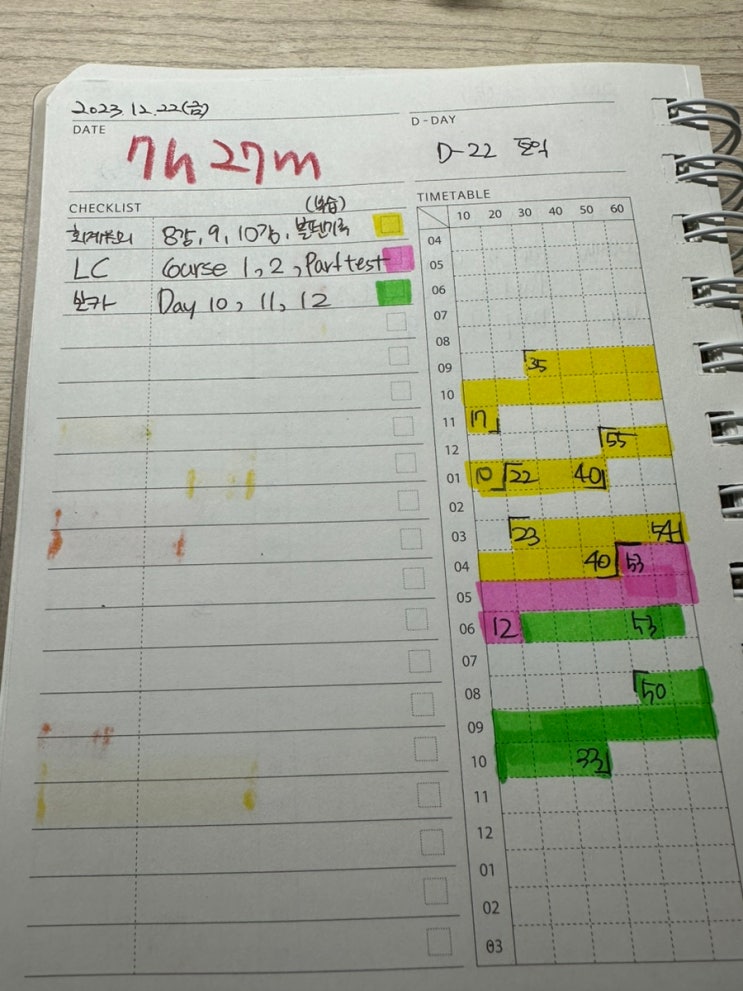 2023.12.22(금)
DATE
7h 27m
D-DAY
D-22 토익
CHECKLIST
(복습)
8강, 9, 10강,
LC Course 1, 2, Part test
보카 Day 10, 11, 12
TIMETABLE
10 20 30 40 50 60
04
05
06
07
08
09 35
10
11 17
12 55
01 10 22 40
02
03 23 54
04 40 53
05
06 12 53
07
08 50
09
10 33
11
12
01
02
03